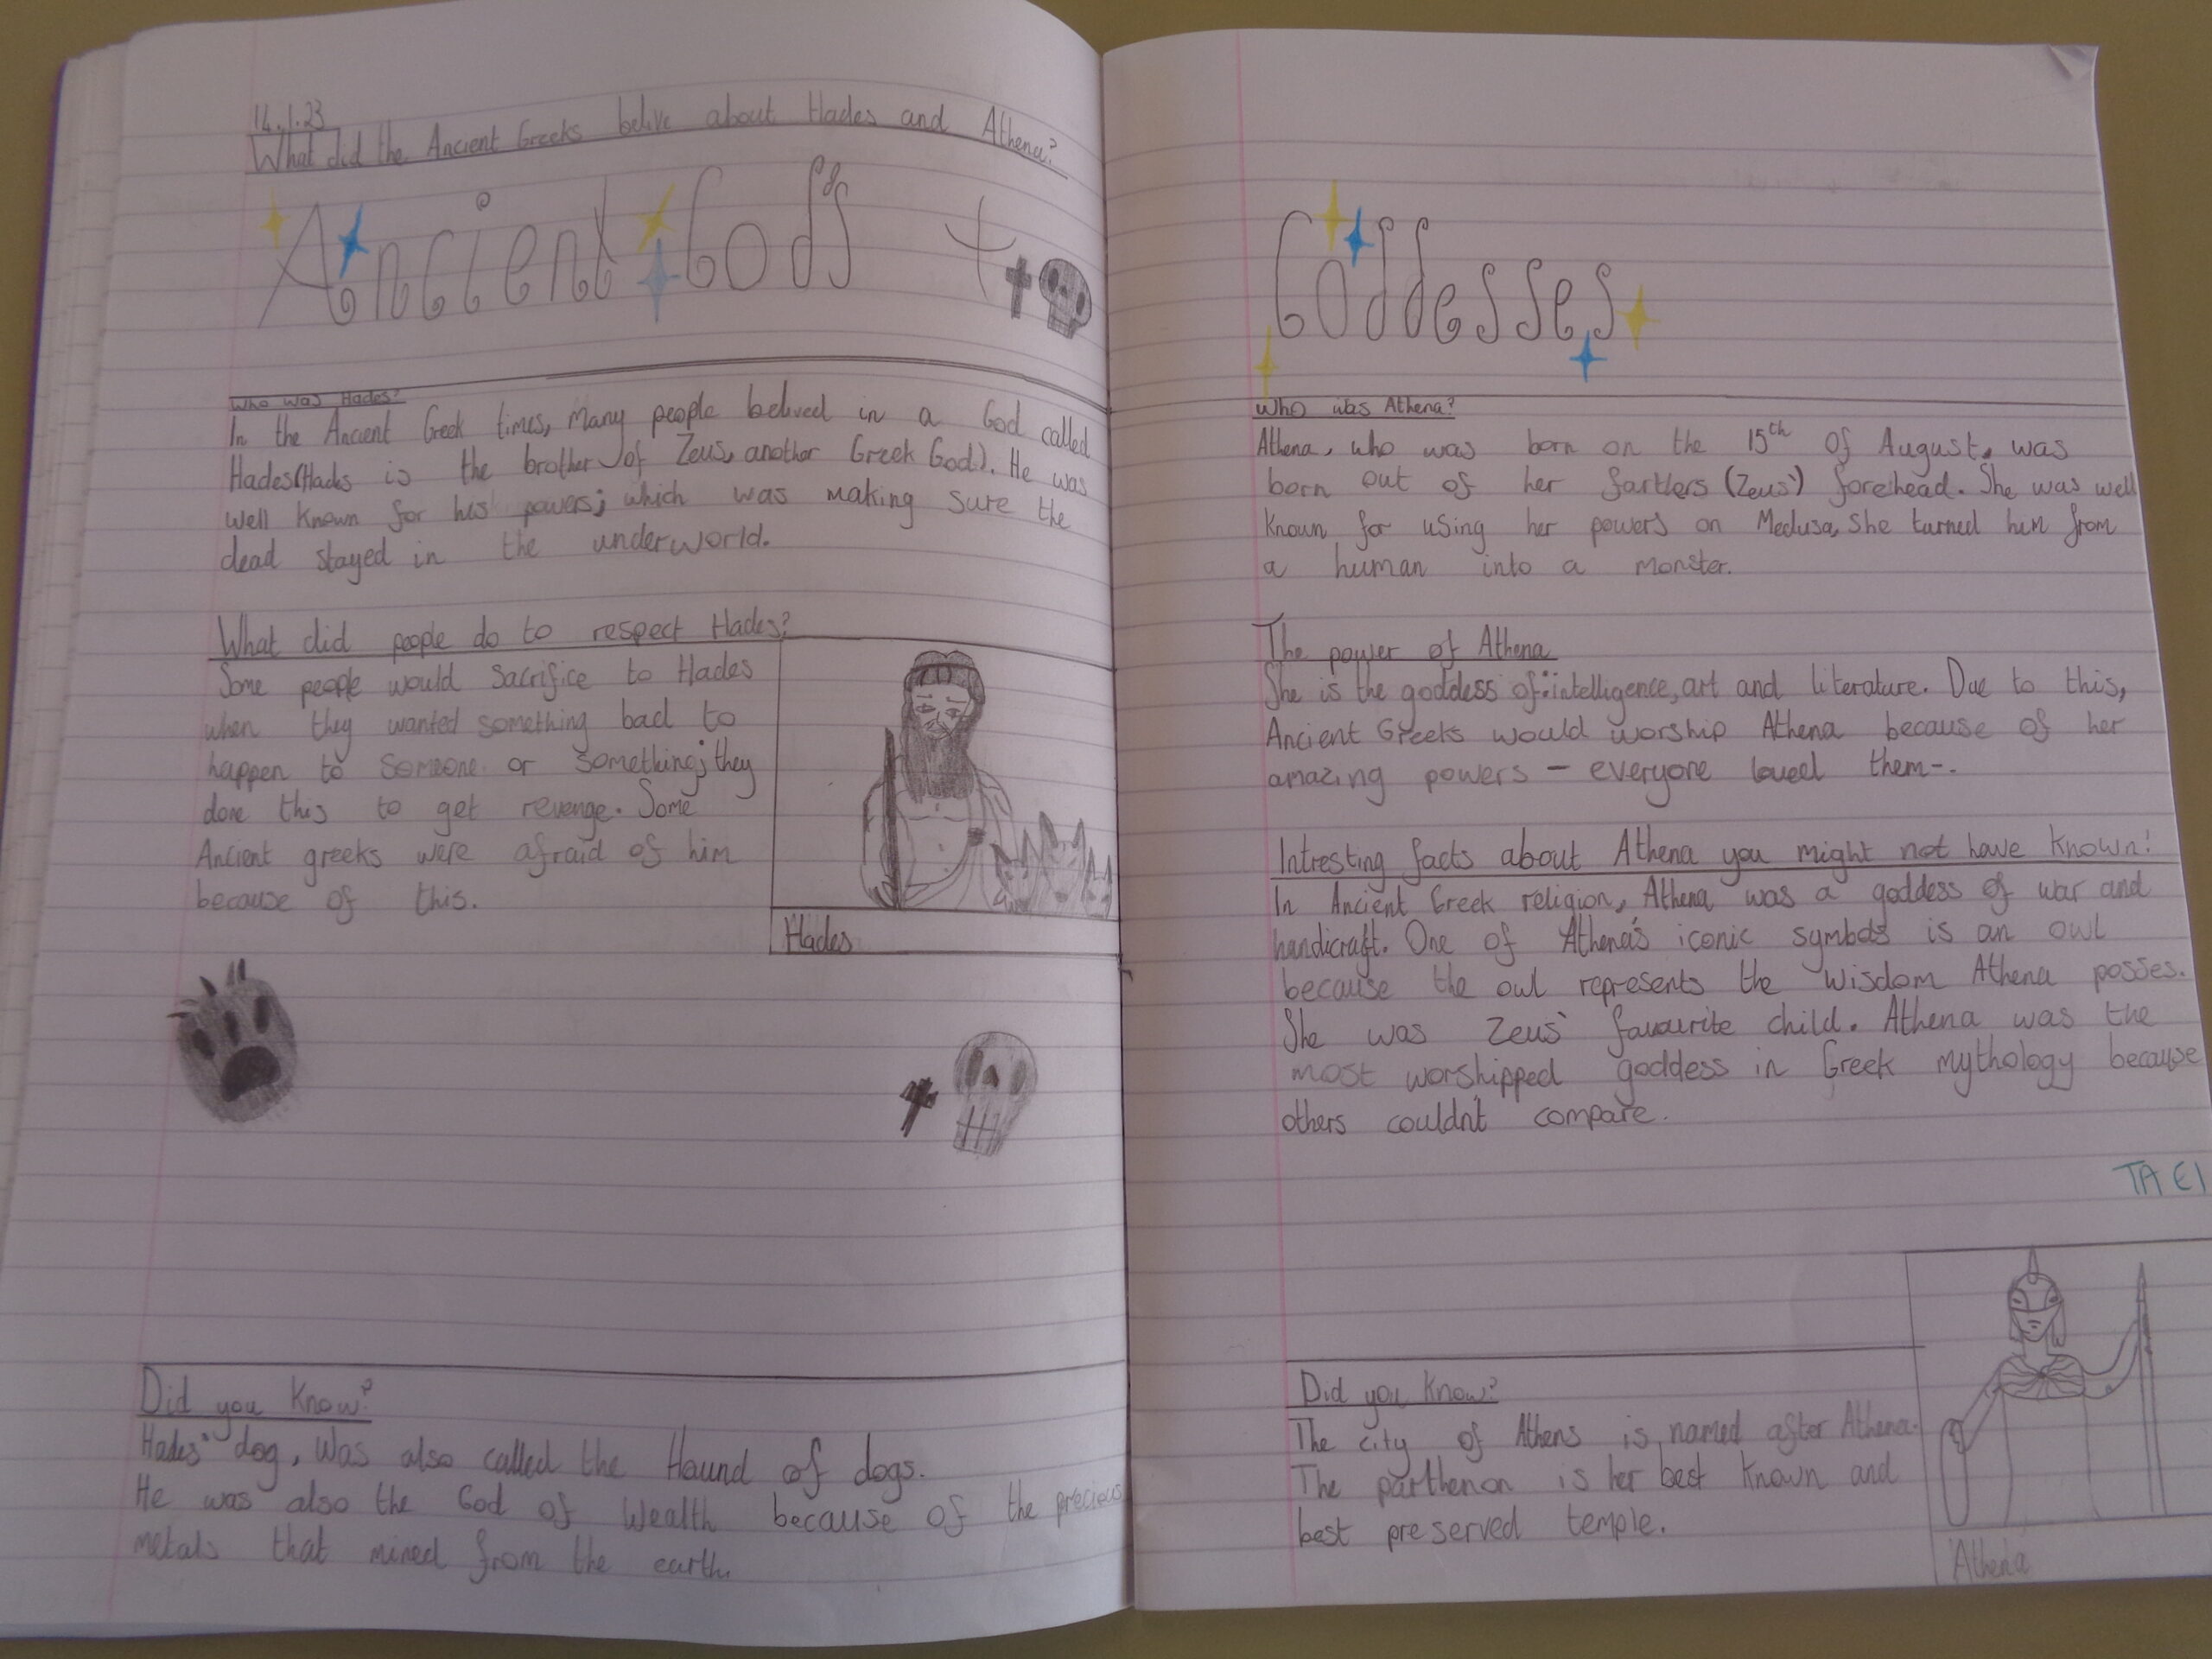 14.1.23
What did the Ancient Greeks belive about Hades and Athena?
Ancient Gods
Who was Hades?
In the Ancient Greek times, many people belived in a God called
Hades(Hades is the brother of Zeus, another Greek God). He was
well known for his powers; which was making sure the
dead stayed in the underworld.
What did people do to respect Hades?
Some people would sacrifice to Hades
when they wanted something bad to
happen to someone or something; they
done this to get revenge. Some
Ancient greeks were afraid of him
because of this.
Hades
Did you know?
Hades' dog, was also called the Hound of dogs.
He was also the God of wealth because of the precious
metals that mined from the earth.
Goddesses
Who was Athena?
Athena, who was born on the 15th of August, was
born out of her (Zeus') forehead. She was well
known for using her powers on Medusa, she turned him from
a human into a monster.
The power of Athena
She is the goddess of: intelligence, art and literature. Due to this,
Ancient Greeks would worship Athena because of her
amazing powers - everyone loved them-.
Intresting facts about Athena you might not have known!
In Ancient Greek religion, Athena was a goddess of war and
handicraft. One of Athena's iconic symbols is an owl
because the owl represents the wisdom Athena posses.
She was Zeus' favourite child. Athena was the
most worshipped goddess in Greek mythology because
others couldn't compare.
TA E1
Did you know?
The city of Athens is named after Athena.
The parthenon is her best known and
best preserved temple.
Athena